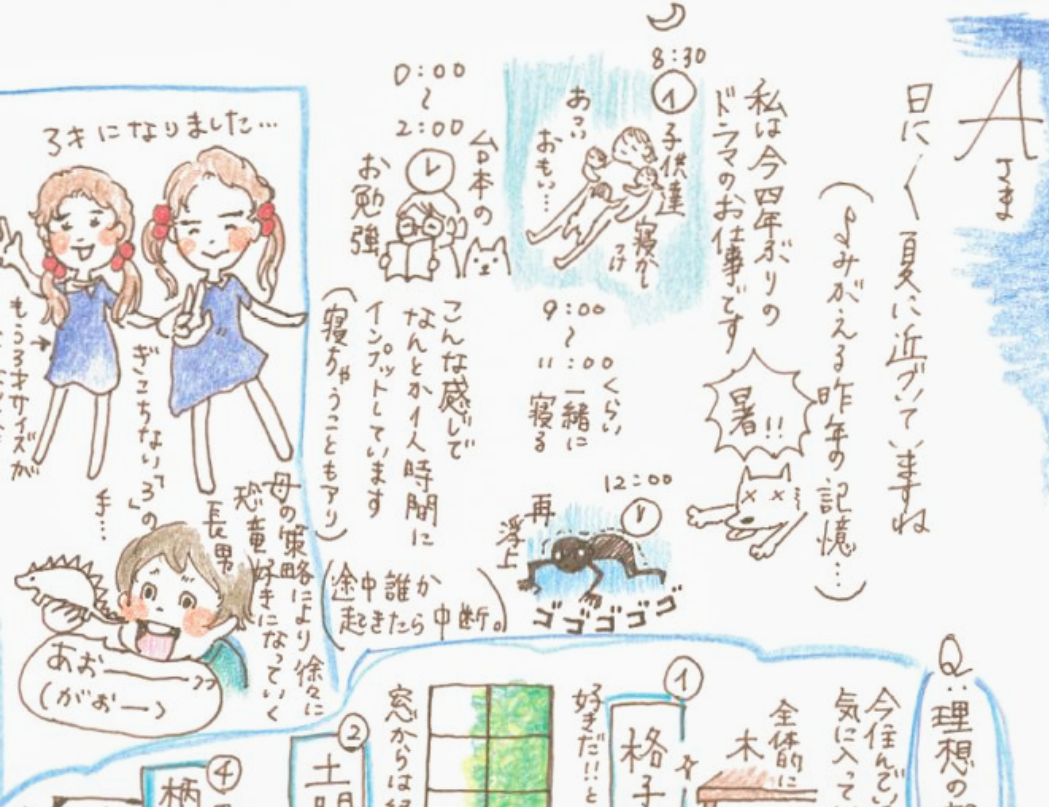 Aさま
日に〱夏に近づいていますね
(よみがえる昨年の記憶…)
暑!!
私は今四年ぶりの
ドラマのお仕事です
8:30
子供達
寝かしつけ
あつい
おもい…
9:00
〜
11:00くらい
一緒に
寝る
12:00
再
浮上
ゴゴゴゴゴ
0:00
〜
2:00
台本の
お勉強
こんな感じで
なんとか1人時間に
インプットしています
(寝ちゃうこともアリ)
(途中誰か
起きたら中断。)
3才になりました…
もう3才サイズが
ぎこちない「3」の
手…
母の策略により徐々に
恐竜好きになっていく
長男
あおーーー
(がおー)
Q:理想の
今住んで
気に入って
全体的に
木
①
格子
好きだ!!と
窓からは
②
土間
④
柄